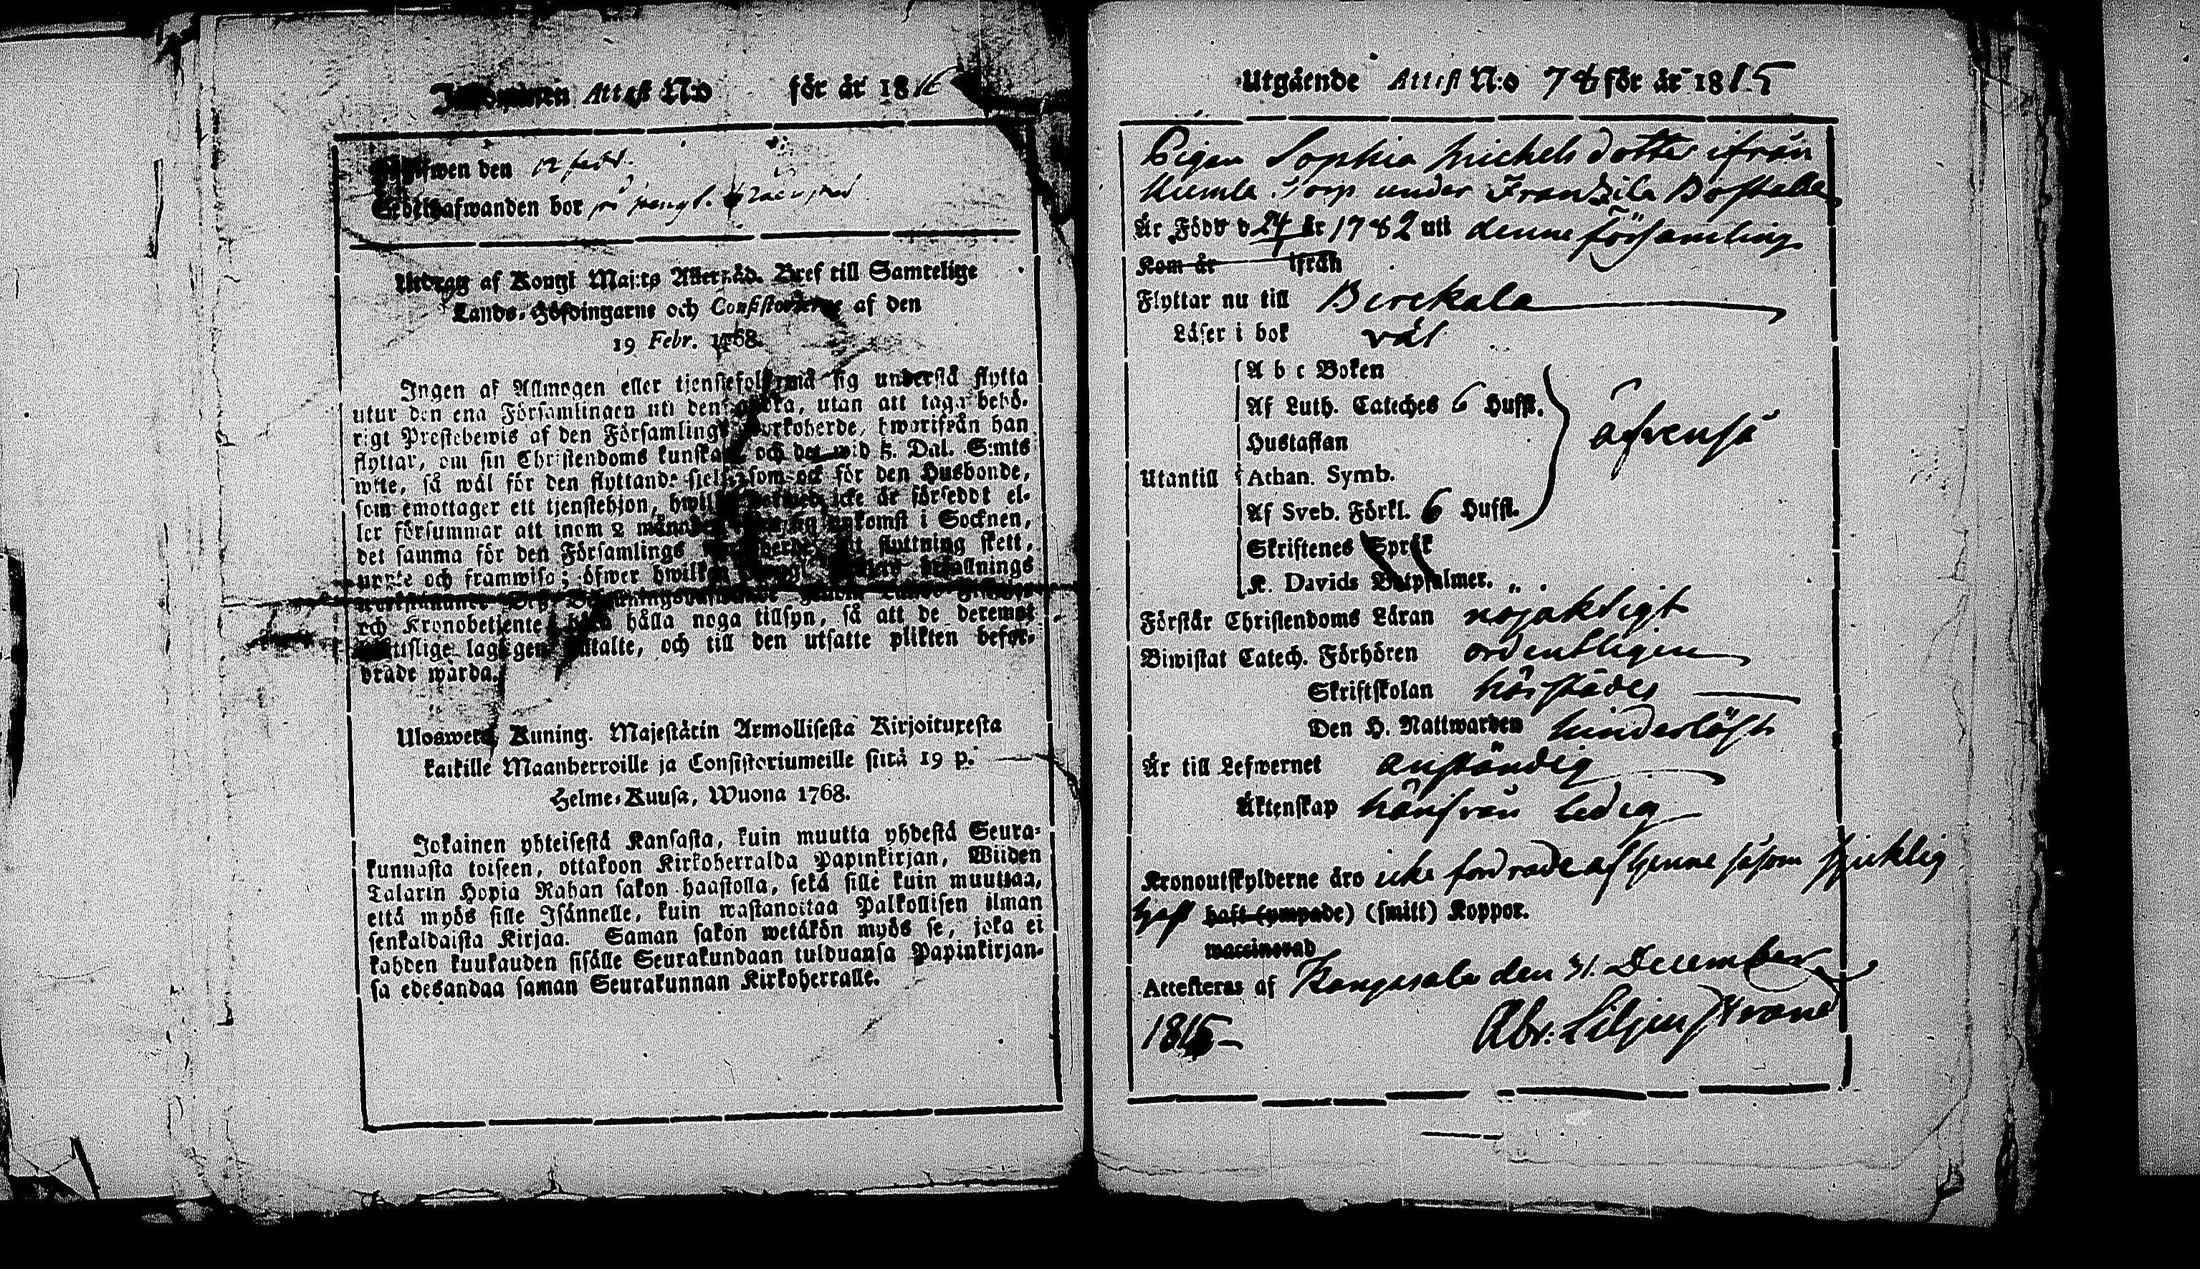 Inkommen Attest N:o för år 1816
Uppwisen den 12 febr.
Sedelhafwanden bor på
Utdrag af Kongl Maj:ts Allernåd. Bref till Samtelige
Lands-Höfdingarne och Consistorierne af den
19 Febr. 1768.
Ingen af Allmogen eller tjenstefolk må sig understå flytta
utur den ena Församlingen uti den andra, utan att taga behö-
rigt Prestebewis af den Församlings Kyrkoherde, hwarifrån han
flyttar, om sin Christendoms kunskap, och det wid 5. Dal. S:mts
wite, så wäl för den flyttande sielf, som ock för den Husbonde,
som emottager ett tjenstehjon, hwilket dermed icke är försedt el-
ler försummar att inom 2 månader efter sig ankomst i Socknen,
det samma för den Församlings Kyrkoherde, dit flyttning skett,
uppte och framwisa; öfwer hwilket Kongl. Befallnings
och Kronobetjente böra hålla noga tillsyn, så att de deremot
lagligen tiltalte, och till den utsatte plikten befor-
drade wärda.
Uloswett Kuning. Majestätin Armollisesta Kirjoituxesta
kaikille Maanherroille ja Consistoriumeille siitä 19 p.
Helme-Kuusa, Wuona 1768.
Jokainen yhteisestä Kansasta, kuin muutta yhdestä Seura-
kunnasta toiseen, ottakoon Kirkoherralda Papinkirjan, Wiiden
Talarin Hopia Rahan sakon haastolla, sekä sille kuin muuttaa,
että myös sille Isännelle, kuin wastanottaa Palkollisen ilman
senkaldaista Kirjaa. Saman sakon wetäkön myös se, joka ei
kahden kuukauden sisälle Seurakundaan tulduansa Papinkirjan-
sa edesandaa saman Seurakunnan Kirkoherralle.
Utgående Attest N:o 78 för år 1815
Pigan Sophia Michelsdotter ifrån
Torp under Franzila Boställe
Är Född d 24 år 1782 uti denne församling
Kom år ifrån
Flyttar nu till Birckala
Läser i bok väl
A b c Boken
Af Luth. Cateches 6 Hufst.
Hustaflan
Utantill Athan. Symb. äfvenså
Af Sveb. Förkl. 6 Hufst.
Skriftenes Språk
K. Davids Botpsalmer.
Förstår Christendoms Läran nöjaktigt
Biwistat Catech. Förhören ordentligen
Skriftskolan härstädes
Den H. Nattwarden hinderlöst
Är till Lefwernet anständig
Äktenskap härifrån ledig
Kronoutskylderne äro icke fordrade af henne såsom sjuklig
haft haft (ympade) (smitt) Koppor.
waccinerad
Attesteras af Kangasala den 31. December
1815 Abr: Liljenstrand